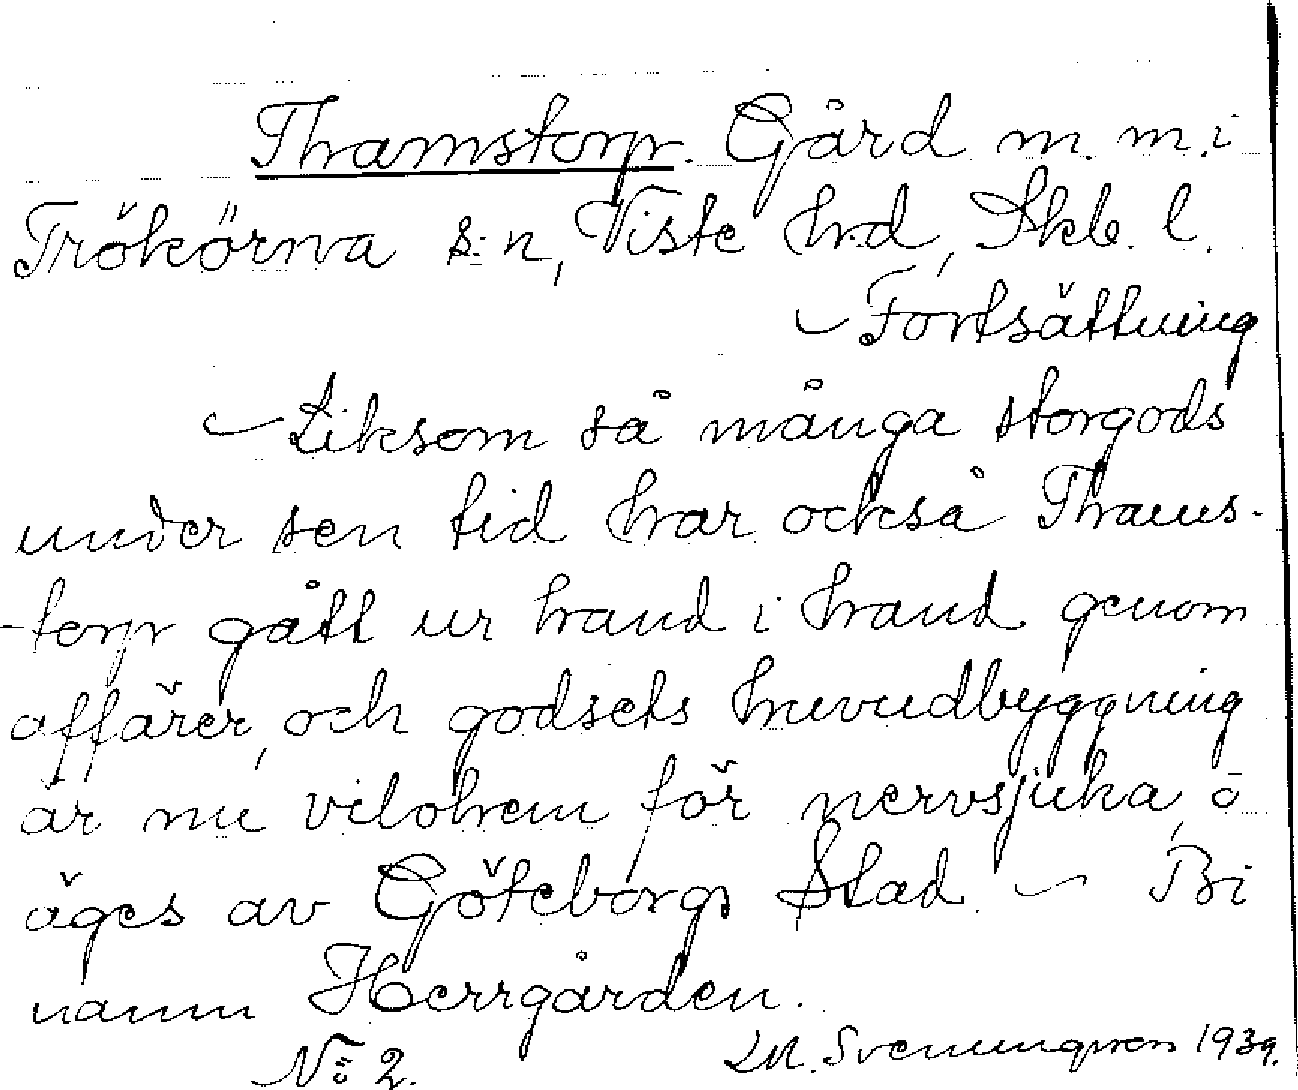 Thamstorp. Gård m. m. i
Trökörna s:n, Viste hrd, Skb. l.
– Fortsättning
– Liksom så många storgods
under sen tid har också Thams-
-torp gått ur hand i hand genom
affärer, och godsets huvudbyggning
är nu vilohem för nervsjuka, o
äges av Göteborgs Stad. – Bi
namn Herrgården.
No 2. LM. Svenungsson 1939.